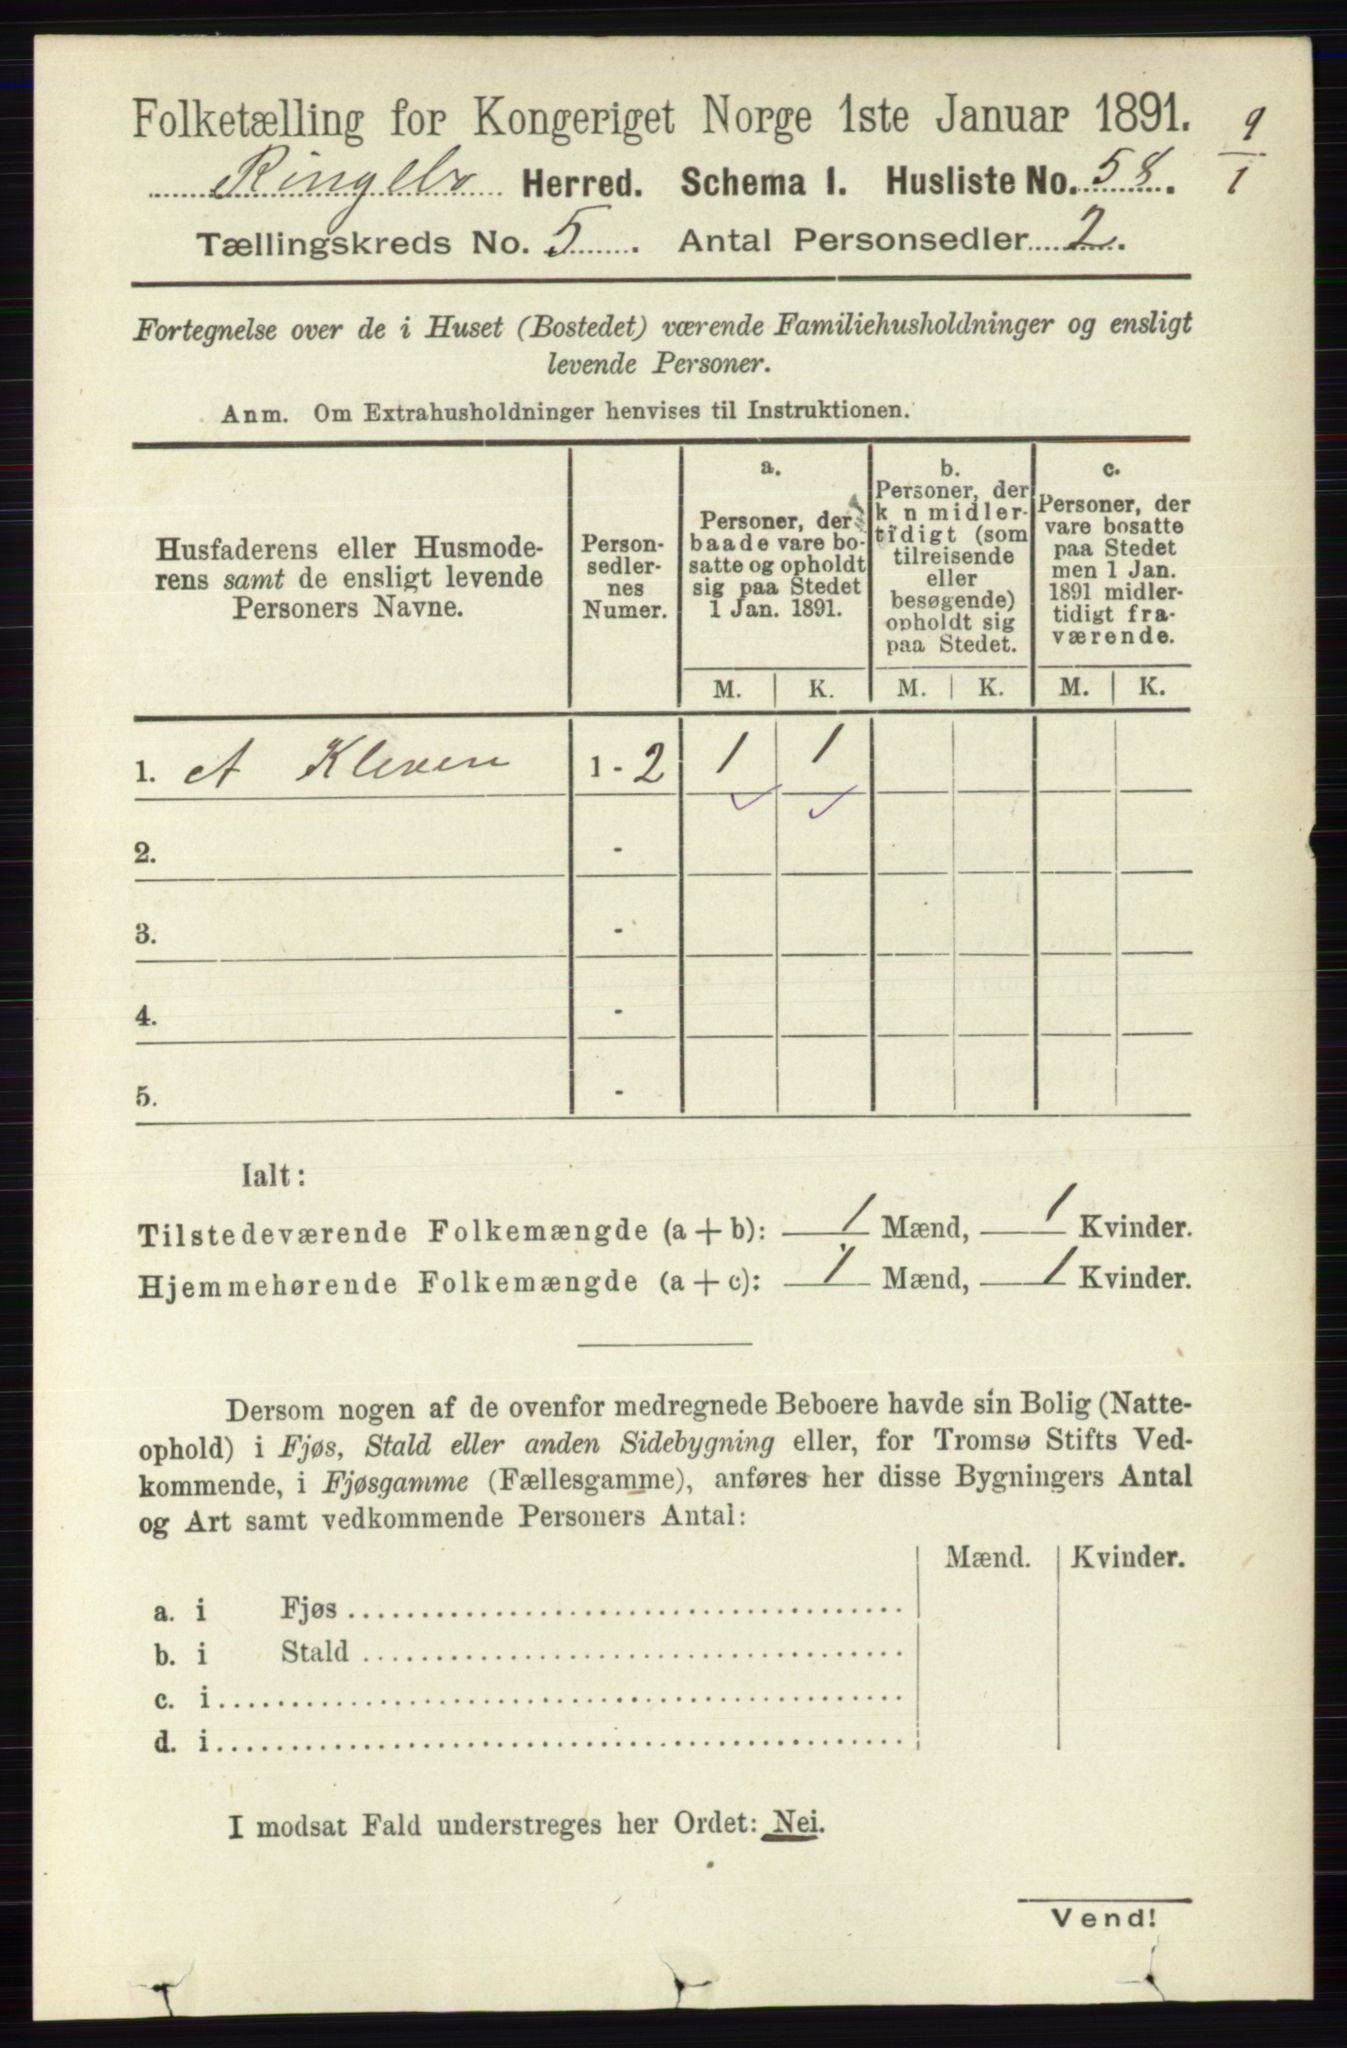 Folketælling for Kongeriget Norge 1ste Januar 1891.
9
1
Ringebo Herred. Schema I. Husliste No. 58.
Tællingskreds No. 5. Antal Personsedler 2.
Fortegnelse over de i Huset (Bostedet) værende Familiehusholdninger og ensligt
levende Personer.
Anm. Om Extrahusholdninger henvises til Instruktionen.
Husfaderens eller Husmode-
rens samt de ensligt levende
Personers Navne.
Person-
sedler-
nes
Numer.
a.
Personer, der
baade vare bo-
satte og opholdt
sig paa Stedet
1 Jan. 1891.
b.
Personer, der
k n midler-
tidigt (som
tilreisende
eller
besøgende)
opholdt sig
paa Stedet.
c.
Personer, der
vare bosatte
paa Stedet
men 1 Jan.
1891 midler-
tidigt fra-
værende.
M. K. M. K. M. K.
1. A Kleven 1 - 2 1 1
2. -
3. -
4. -
5. -
Ialt:
Tilstedeværende Folkemængde (a + b): 1 Mænd, 1 Kvinder.
Hjemmehørende Folkemængde (a + c): 1 Mænd, 1 Kvinder.
Dersom nogen af de ovenfor medregnede Beboere havde sin Bolig (Natte-
ophold) i Fjøs, Stald eller anden Sidebygning eller, for Tromsø Stifts Ved-
kommende, i Fjøsgamme (Fællesgamme), anføres her disse Bygningers Antal
og Art samt vedkommende Personers Antal:
Mænd. Kvinder.
a. i Fjøs
b. i Stald
c. i
d. i
I modsat Fald understreges her Ordet: Nei.
Vend!